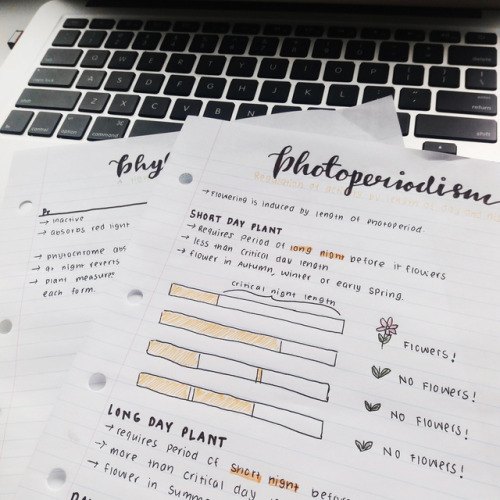 Photoperiodism
→ Flowering is induced by length of photoperiod.
SHORT DAY PLANT
→ Requires period of long night before it flowers
→ less than critical day length
→ flower in Autumn, winter or early spring.
critical night length
Flowers!
NO Flowers!
NO Flowers!
NO Flowers!
LONG DAY PLANT
→ requires period of short night before
→ more than critical day
→ flower in summer
Phy
Pr
→ inactive
→ absorbs red light
→ phytochrome abs
→ at night reverts
→ plant measures
each form.
caps lock
shift
control
option
command